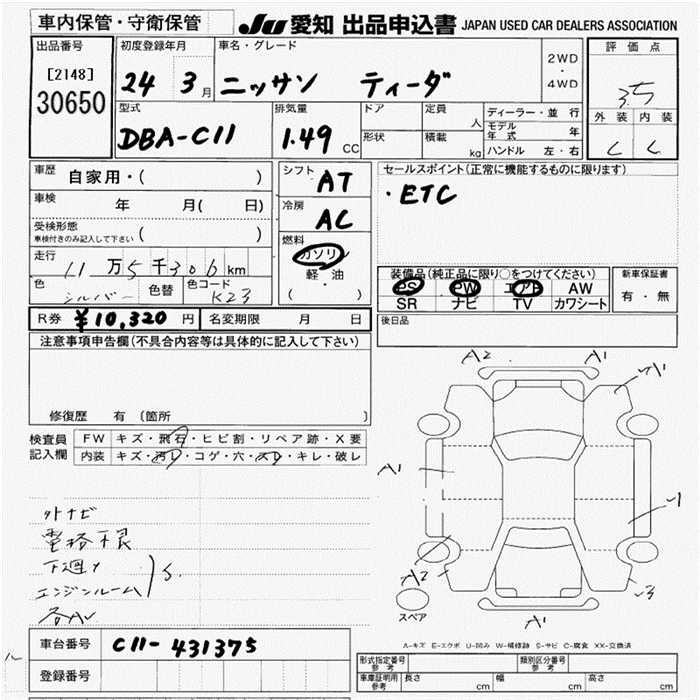 車内保管・守衛保管
JU 愛知 出品申込書 JAPAN USED CAR DEALERS ASSOCIATION
出品番号
[2148]
30650
初度登録年月
24 3月
車名・グレード
ニッサン ティーダ
2WD
・
4WD
評価点
3.5
外装 内装
C C
型式
DBA-C11
排気量
1.49 CC
ドア
形状
定員 人
積載 kg
ディーラー・並行
モデル年式 年
ハンドル 左・右
車歴 自家用・( )
車検 年 月( 日)
受検形態
車検付きのみ記入して下さい ( )
走行
11万5千306km
色 シルバー 色替 色コード K23
シフト AT
冷房 AC
燃料
ガソリン
軽・油
( )
セールスポイント(正常に機能するものに限ります)
・ETC
装備品(純正品に限り○をつけてください)
PS PW エアB AW
SR ナビ TV カワシート
新車保証書
有・無
R券 ¥10,320円 名変期限 月 日
後日品
注意事項申告欄(不具合内容等は具体的に記入して下さい)
修復歴 有 〔箇所 〕
検査員
記入欄
FW キズ・飛石・ヒビ割・リペア跡・X要
内装 キズ・汚レ・コゲ・穴・スレ・キレ・破レ
A2 A1
A1
A1
A2
A1
スペア
外ナビ
電格不良
下廻り
エンジンルーム
S
A-キズ E-エクボ U-凹み W-補修跡 S-サビ C-腐食 XX-交換済
車台番号 C11-431375
登録番号
形式指定番号
参考
類別区分番号
参考
車庫証明用
参考
長さ cm 幅 cm 高さ cm